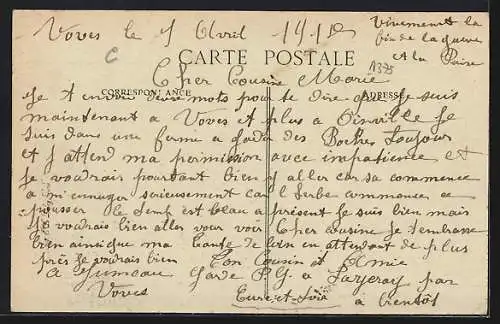 Voves le 1 Avril 1918
Vivement la
fin de la guerre
et la Paix
C
CARTE POSTALE
A375
CORRESPONDANCE
ADRESSE
Cher Cousine Marie
Je t envoie deux mots pour te dire que Je suis
maintenant a Voves et plus a Oinville Je
suis dans une ferme a garder des Boches toujours
et J attend ma permission avec impatience et
Je voudrais pourtant bien y aller car sa commence
a mi ennuyer serieusement car l herbe commence a
pousser le temp est beau a présent Je suis bien mais
Je voudrais bien aller vous voir Cher cousine Je t embrasse
bien ainsi que ma tante de loin en attendant de plus
près Je voudrais bien Ton Cousin et Amie
A Gumeau Garde P.G a par
Voves Eure-et-Loir a bientôt